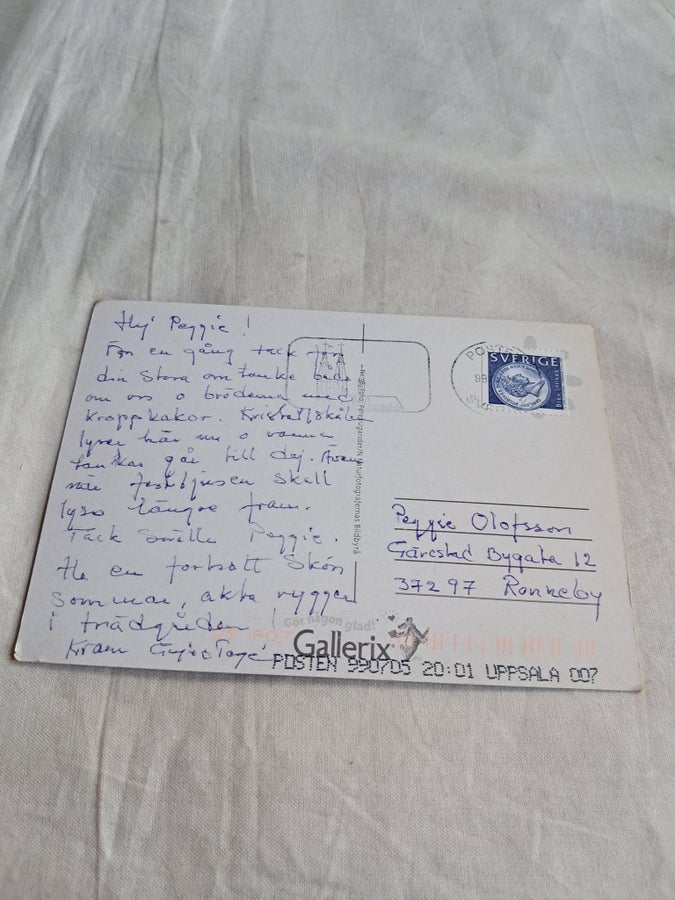 Hej Peggie!
Än en gång tack för
din stora omtanke både
om oss o bröderna med
kroppkakor. Kristallskålen
lyser här nu o varma
tankar går till dej. Även
när festljusen skall
lysa längre fram.
Tack snälla Peggie.
Ha en fortsatt skön
sommar, akta ryggen
i trädgården!
Kram
POSTEN
SVERIGE
Peggie Olofsson
Gärestad Bygata 12
372 97 Ronneby
Naturfotografernas Bildbyrå
Gör någon glad!
Gallerix
POSTEN 990705 20:01 UPPSALA 007